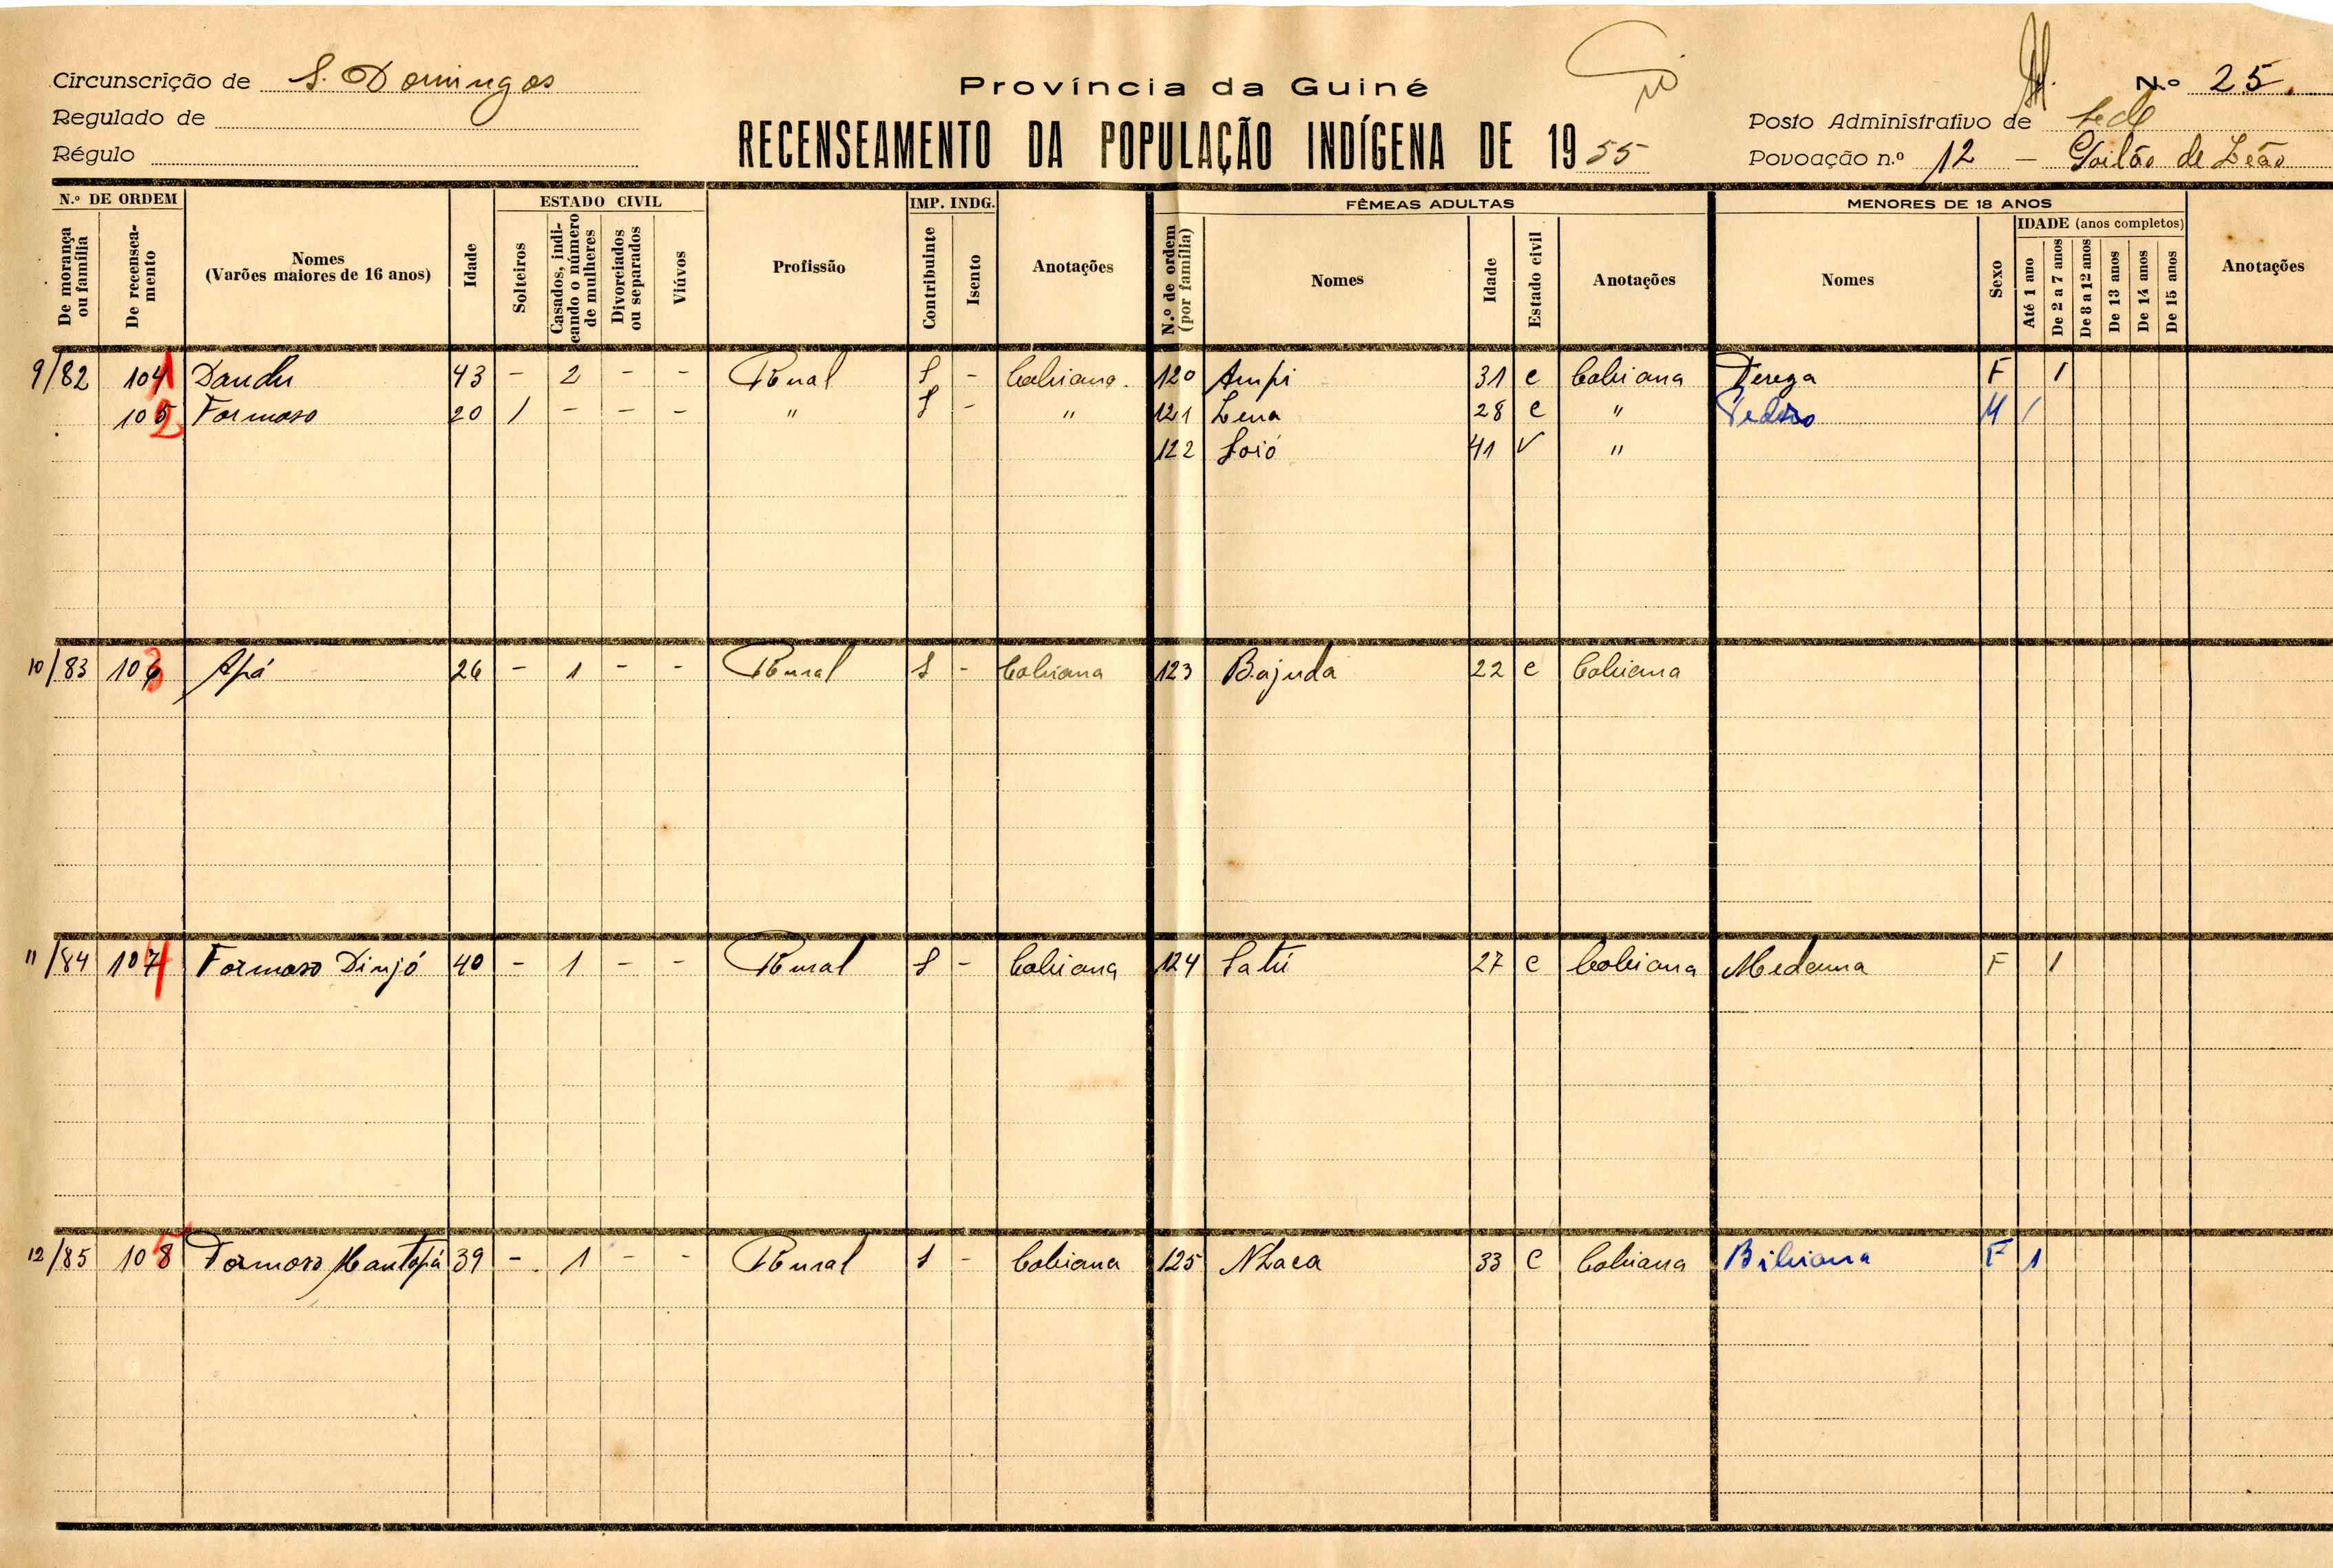 Província da Guiné
N.º 25.
Circunscrição de S. Domingos
Regulado de
Régulo
RECENSEAMENTO DA POPULAÇÃO INDÍGENA DE 1955
Posto Administrativo de Sede
Povoação n.º 12 — Poilão de Leão
N.º DE ORDEM
De morança ou família
De recenseamento
Nomes
(Varões maiores de 16 anos)
Idade
ESTADO CIVIL
Solteiros
Casados, indicando o número de mulheres
Divorciados ou separados
Viúvos
Profissão
IMP. INDG.
Contribuinte
Isento
Anotações
FÊMEAS ADULTAS
N.º de ordem (por família)
Nomes
Idade
Estado civil
Anotações
MENORES DE 18 ANOS
Nomes
Sexo
IDADE (anos completos)
Até 1 ano
De 2 a 7 anos
De 8 a 12 anos
De 13 anos
De 14 anos
De 15 anos
Anotações
9/82 104 1 Dandu 43 - 2 - - Rural S - Cobiana. 120 Ampi 31 c Cobiana Tereza F 1
105 2 Formoso 20 1 - - - " S - " 121 Lena 28 c " Pedro M 1
122 Soió 41 V "
10/83 106 3 Apá 26 - 1 - - Rural S - Cobiana 123 Bajuda 22 c Cobiana
11/84 107 4 Formoso Dinjó 40 - 1 - - Rural S - Cobiana 124 Satú 27 c Cobiana Medanna F 1
12/85 108 5 Formoso Mantopá 39 - 1 - - Rural S - Cobiana 125 NLaca 33 c Cobiana Bibiana F 1